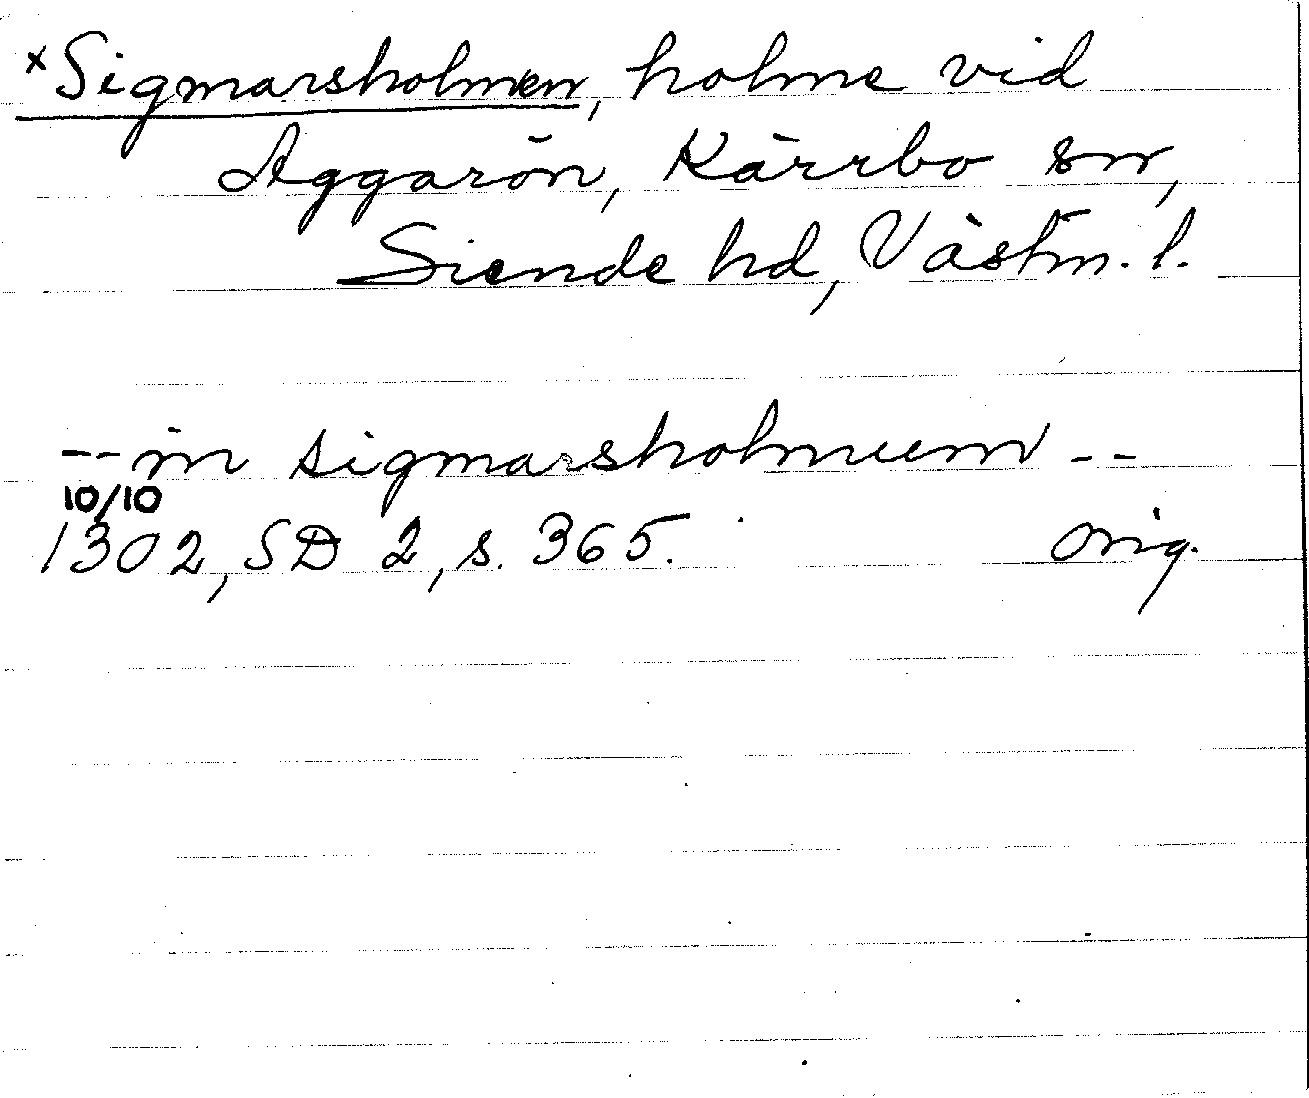 ×Sigmarsholmen, holme vid
Aggarön, Kärrbo sn,
Siende hd, Västm. l.
-- in sigmarsholmum --
10/10
1302, SD 2, s. 365. orig.